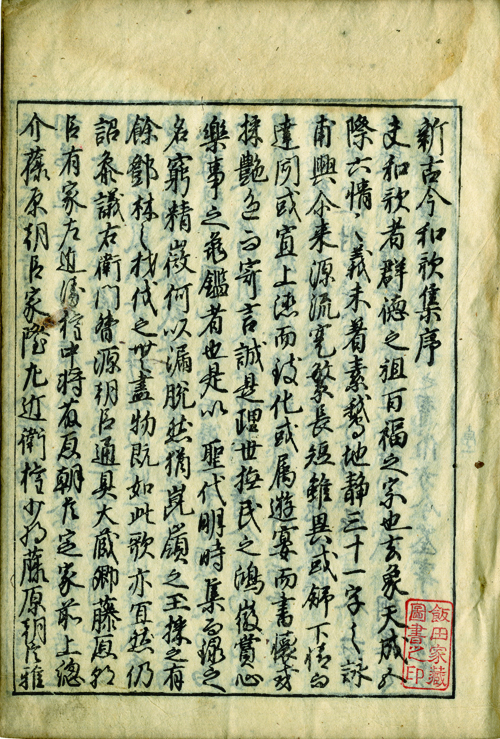 新古今和歌集序
夫和歌者群徳之祖百福之宗也玄象天成五
際六情之義未著素鵞地静三十一字之詠
甫興尒来源流寔繁長短雖異或舒下情而
達聞或宣上徳而致化或属遊宴而書懐或
採艶色而寄言誠是理世撫民之鴻徽賞心
樂事之龜鑑者也是以 聖代明時集而録之
各窮精微何以漏脱然猶崑嶺之玉採之有
餘鄧林之材伐之無盡物既如此歌亦宜然仍
詔参議右衛門督源朝臣通具大蔵卿藤原朝
臣有家左近衛権中将藤原朝臣定家前上總
介藤原朝臣家隆左近衛権少将藤原朝臣雅
飯田家藏
圖書之印